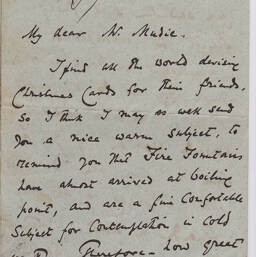 My dear Mr. Mudie.
I find all the world devising
Christmas Cards for their friends,
So I think I may as well send
you a nice warm subject, to
remind you that Fire Fountains
have almost arrived at boiling
point, and are a fine Comfortable
Subject for Contemplation in cold
Therefore - how great